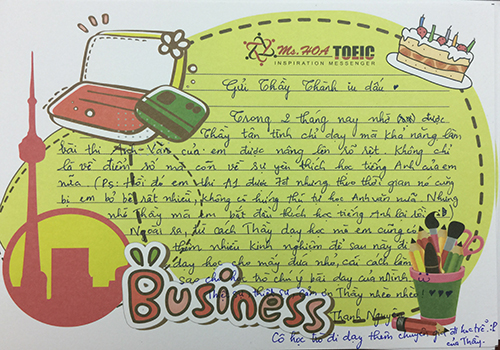 Ms.HOA TOEIC
INSPIRATION MESSENGER
Gửi Thầy Thành iu dấu ♥
Trong 2 tháng nay nhờ được
Thầy tận tình chỉ dạy mà khả năng làm
bài thi Anh Văn của em được nâng lên rõ rệt. Không chỉ
là về điểm số mà còn về sự yêu thích học tiếng Anh của em
nữa. (Ps: Hồi đó em thi A1 được 7đ nhưng theo thời gian nó cũng
bị em bỏ bê rất nhiều, không có hứng thú tự học Anh văn nữa. Nhưng
nhờ Thầy mà em bắt đầu thích học tiếng Anh lại rồi
Ngoài ra, từ cách Thầy dạy học mà em cũng có
thêm nhiều kinh nghiệm để sau này đi
dạy học cho mấy đứa nhỏ, cái cách làm
sao cho tụi nó chú ý bài dạy của mình
Thầy nhiều nhiều!
Business
Thanh Nguyên
Cô học trò đi dạy thêm
của Thầy.